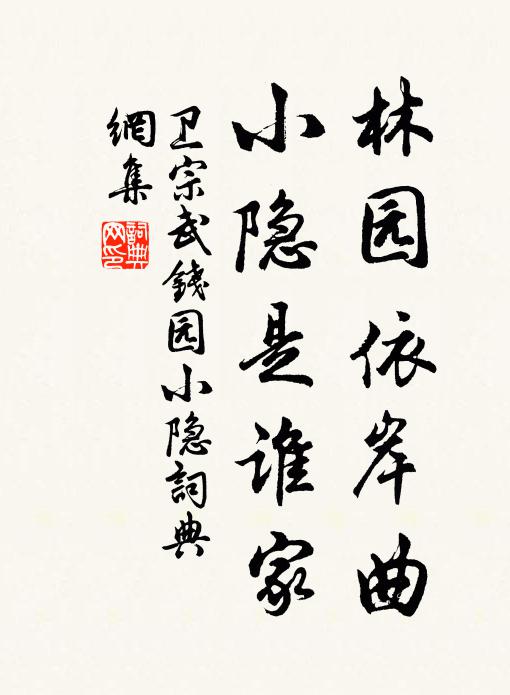 林园依岸曲
小隐是谁家
卫宗武錢园小隐詞典
網集
詞典
网印